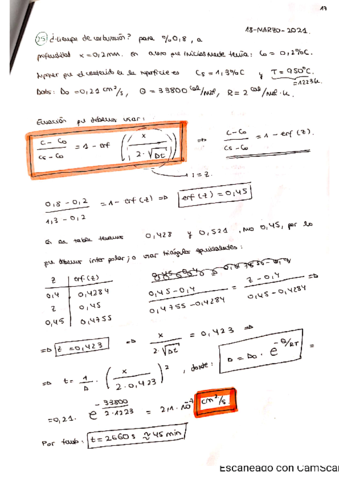 17
18-MARZO-2021
25 ¿tiempo de carburación? para %0,8, a
profundidad x=0,2mm. en acero que inicialmente tenía: C0=0,2%C.
Suponer que el contenido en la superficie es Cs=1,3%C y T=950ºC.
=1223K
Datos: D0=0,21 cm²/s, Q=33800 cal/mol, R=2 cal/mol·K.
Ecuación que debemos usar:
(C-C0)/(Cs-C0) = 1-erf (x/(2·√Dt)) ⇒ (C-C0)/(Cs-C0) = 1-erf(z).
= z.
(0,8-0,2)/(1,3-0,2) = 1-erf(z) ⇒ erf(z)=0,45
En la tabla tenemos 0,428 y 0,521, no 0,45, por lo
que debemos interpolar, o usar triángulos equivalentes:
z erf(z)
0,4 0,4284
z 0,45
0,45 0,4755
(0,45-0,4)/(0,4755-0,4284) = (z-0,4)/(0,45-0,4284) ⇒
⇒ z=0,423 ⇒ x/(2·√Dt) = 0,423 ⇒
⇒ t = 1/D · (x/(2·0,423))², donde: D=D0·e^(-Q/RT) =
=0,21·e^(-33800/2·1223) = 2,1·10^-7 cm²/s
Por tanto: t=2660s ≈ 45min
Escaneado con CamSca